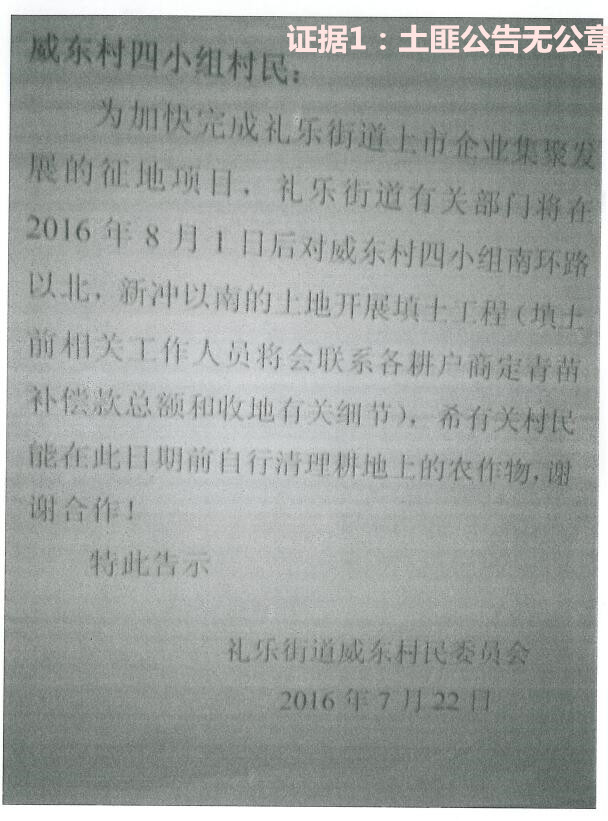 证据1：土匪公告无公章
威东村四小组村民：
为加快完成礼乐街道上市企业集聚发
展的征地项目，礼乐街道有关部门将在
2016年8月1日后对威东村四小组南环路
以北，新冲以南的土地开展填土工程（填土
前相关工作人员将会联系各耕户商定青苗
补偿款总额和收地有关细节），希有关村民
能在此日期前自行清理耕地上的农作物，谢
谢合作！
特此告示
礼乐街道威东村民委员会
2016年7月22日